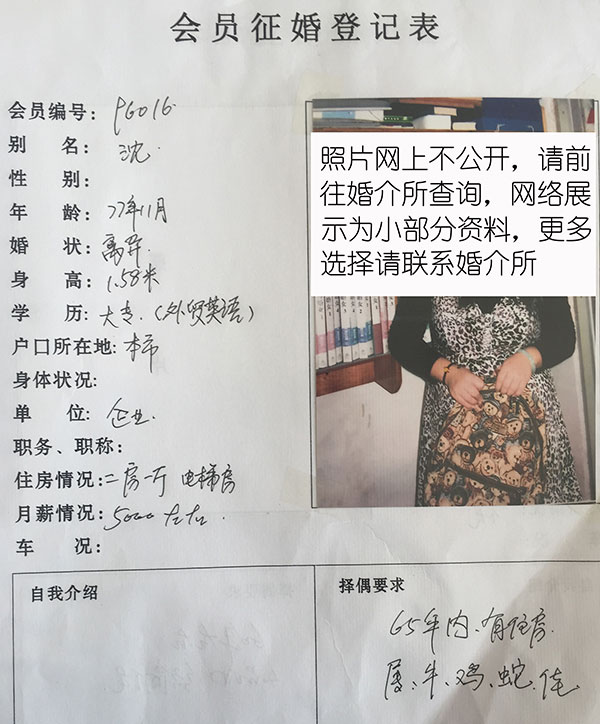 会员征婚登记表
会员编号: PG016
别 名: 沈
性 别:
年 龄: 77年11月
婚 状: 离异
身 高: 1.58米
学 历: 大专.(外贸英语)
户口所在地: 本市
身体状况:
单 位: 企业
职务、职称:
住房情况: 二房一厅 电梯房
月薪情况: 5000左右.
车 况:
照片网上不公开，请前
往婚介所查询，网络展
示为小部分资料，更多
选择请联系婚介所
自我介绍
择偶要求
65年内、有住房.
属、牛、鸡、蛇、佳